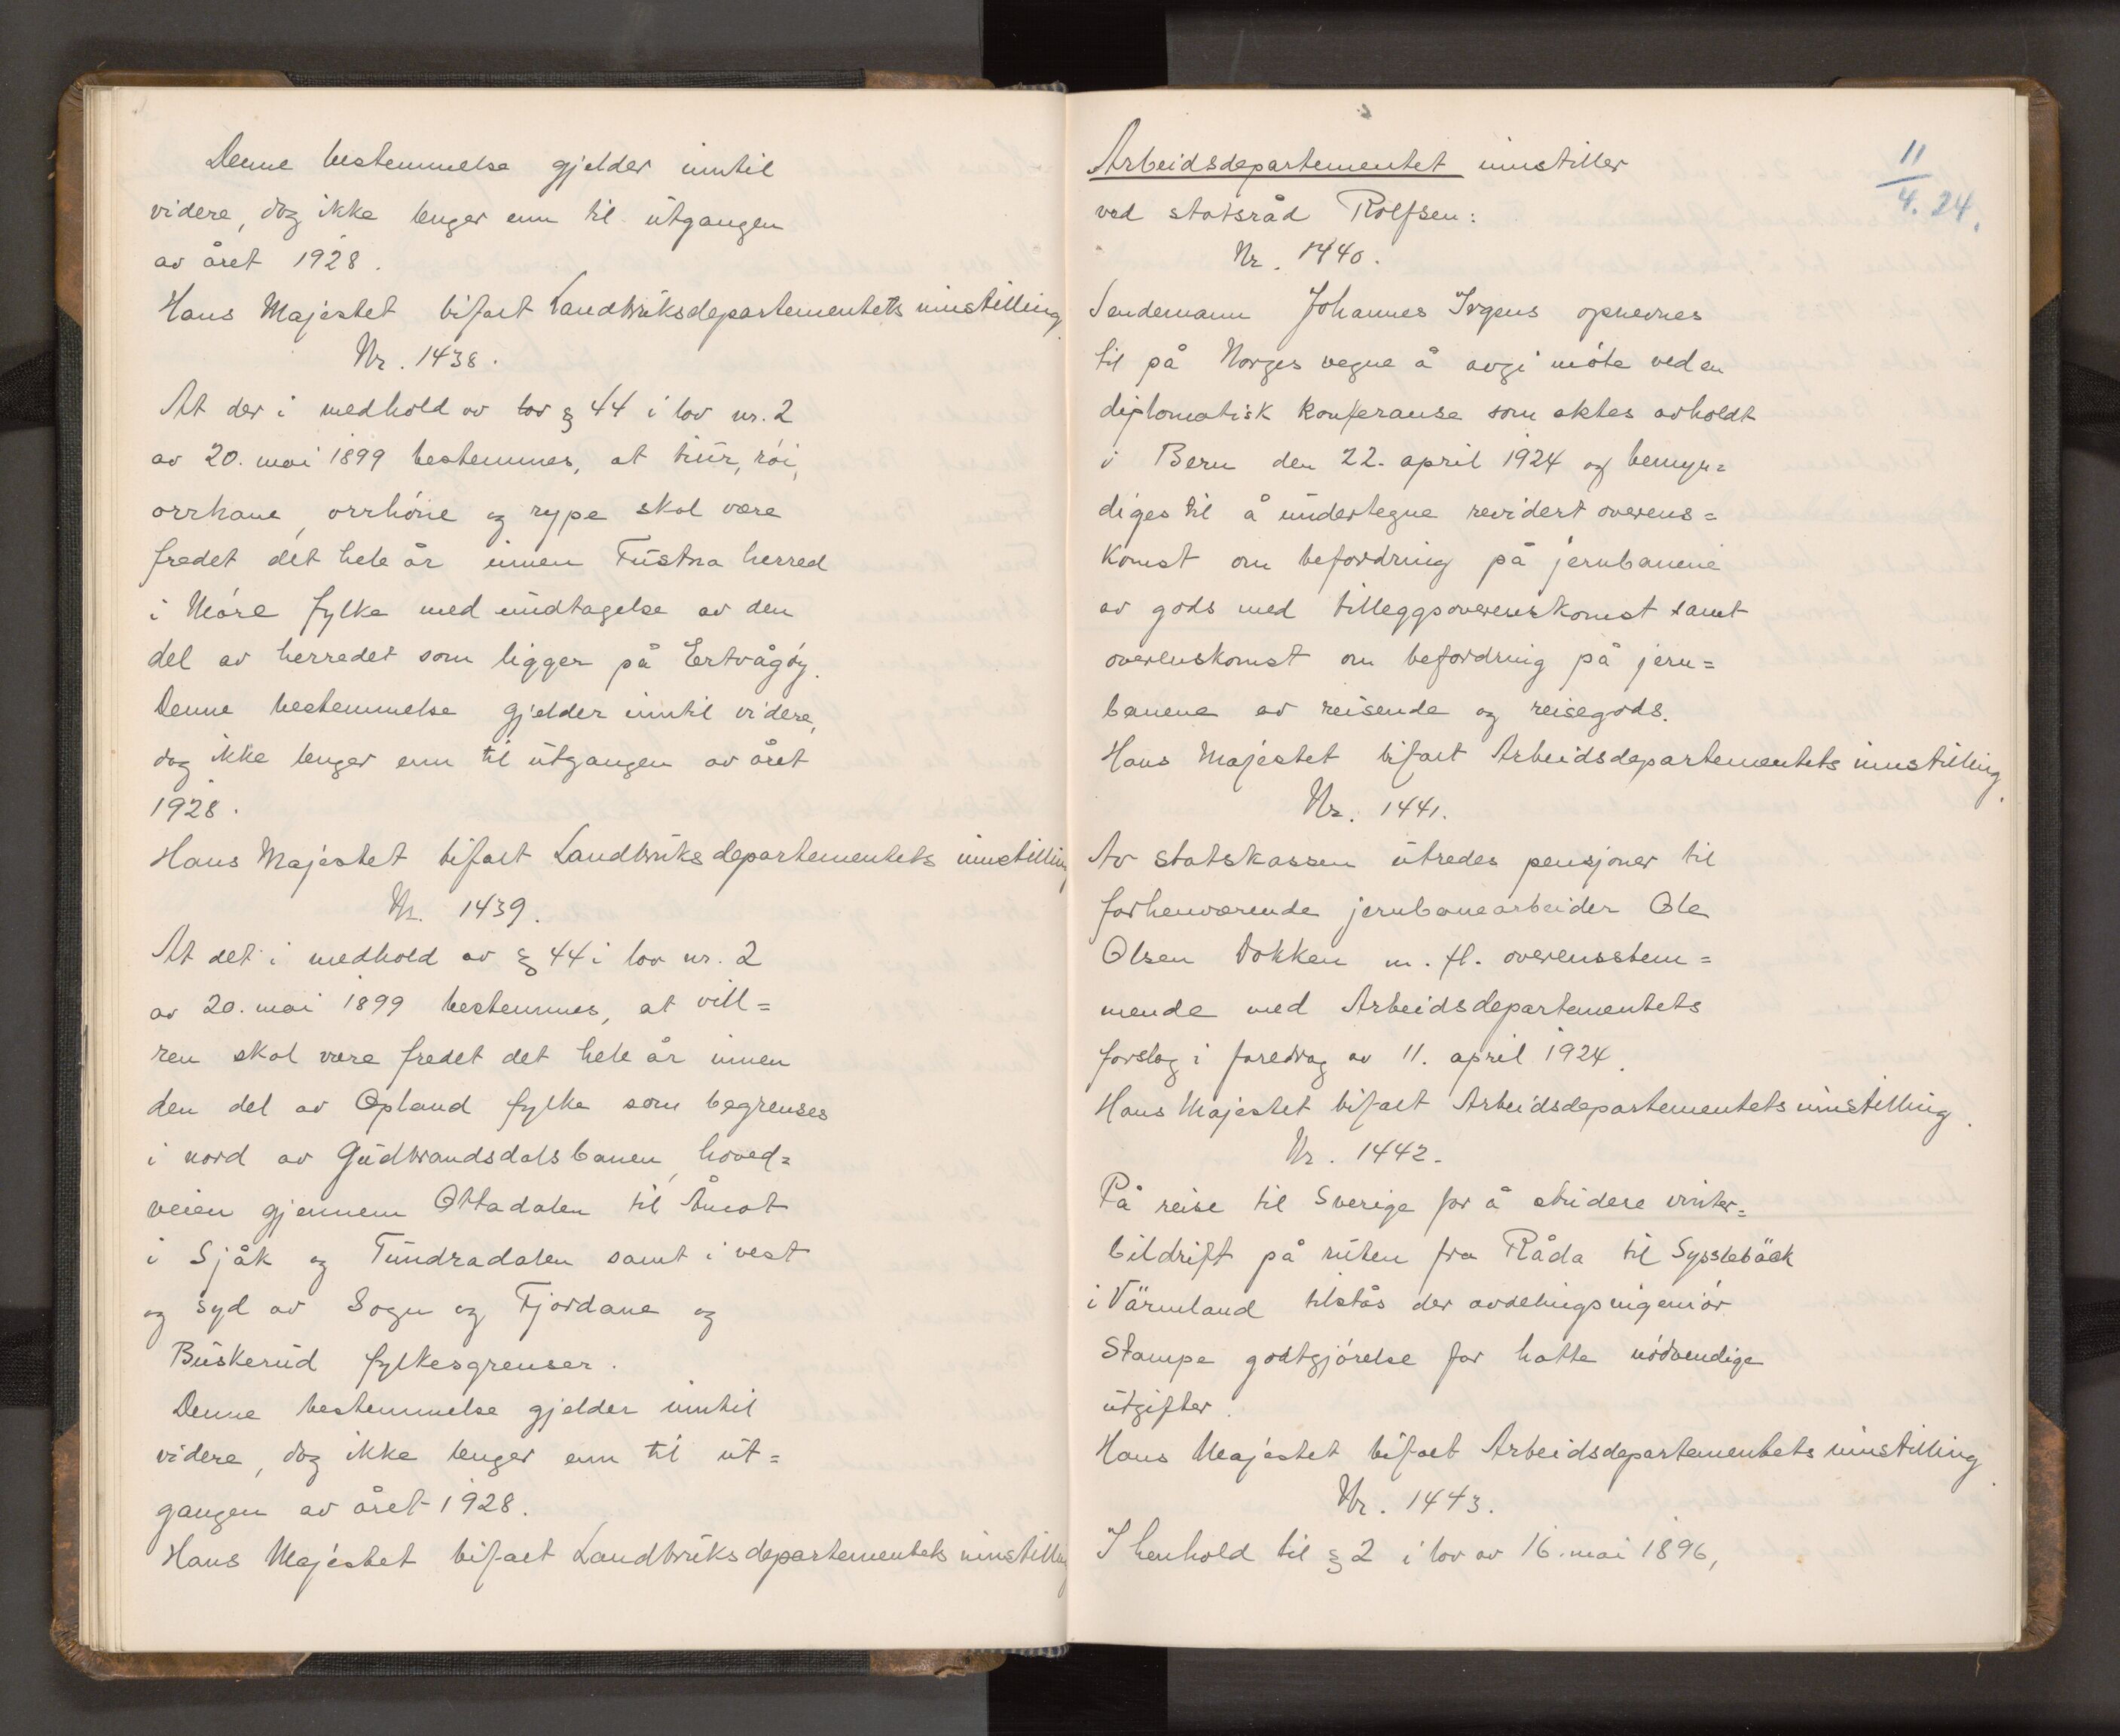 Denne bestemmelse gjelder inntil
videre, dog ikke lenger enn til utgangen
av året 1928.
Hans Majestet bifalt Landbruksdepartementets innstilling.
Nr. 1438.
At der i medhold av lov § 44 i lov nr. 2
av 20. mai 1899 bestemmes, at tiur, röi,
orrhane, orrhöne og rype skal være
fredet det hele år innen Tustna herred
i Möre fylke med undtagelse av den
del av herredet som ligger på Ertvågöy.
Denne bestemmelse gjelder inntil videre,
dog ikke lenger enn til utgangen av året
1928.
Hans Majestet bifalt Landbruksdepartementets innstilling
Nr. 1439.
At det i medhold av § 44 i lov nr. 2
av 20. mai 1899 bestemmes, at vill=
ren skal være fredet det hele år innen
den del av Opland fylke som begrenses
i nord av Gudbrandsdalsbanen, hoved=
veien gjennem Ottadalen til Åmot
i Sjåk og Tundradalen samt i vest
og syd av Sogn og Fjordane og
Buskerud fylkesgrenser.
Denne bestemmelse gjelder inntil
videre, dog ikke lenger enn til ut=
gangen av året 1928.
Hans Majestet bifalt Landbruksdepartementets innstilling
11/4. 24.
Arbeidsdepartementet innstiller
ved statsråd Rolfsen:
Nr. 1440.
Sendemann Johannes Irgens opnevnes
til på Norges vegne å avgi möte ved en
diplomatisk konferanse som aktes avholdt
i Bern den 22. april 1924 og bemyn=
diges til å undertegne revidert overens=
komst om befordring på jernbanene
av gods med tilleggsoverenskomst samt
overenskomst om befordring på jern=
banene av reisende og reisegods.
Hans Majestet bifalt Arbeidsdepartementets innstilling.
Nr. 1441.
Av statskassen utredes pensjoner til
forhenværende jernbanearbeider Ole
Olsen Dokken m. fl. overensstem=
mende med Arbeidsdepartementets
forslag i foredrag av 11. april 1924.
Hans Majestet bifalt Arbeidsdepartementets innstilling.
Nr. 1442.
På reise til Sverige for å studere vinter=
bildrift på ruten fra Råda til Sysslebäck
i Värmland tilstås der avdelingsingeniör
Stampe godtgjörelse for hatte nödvendige
utgifter.
Hans Majestet bifalt Arbeidsdepartementets innstilling.
Nr. 1443.
I henhold til § 2 i lov av 16. mai 1896,